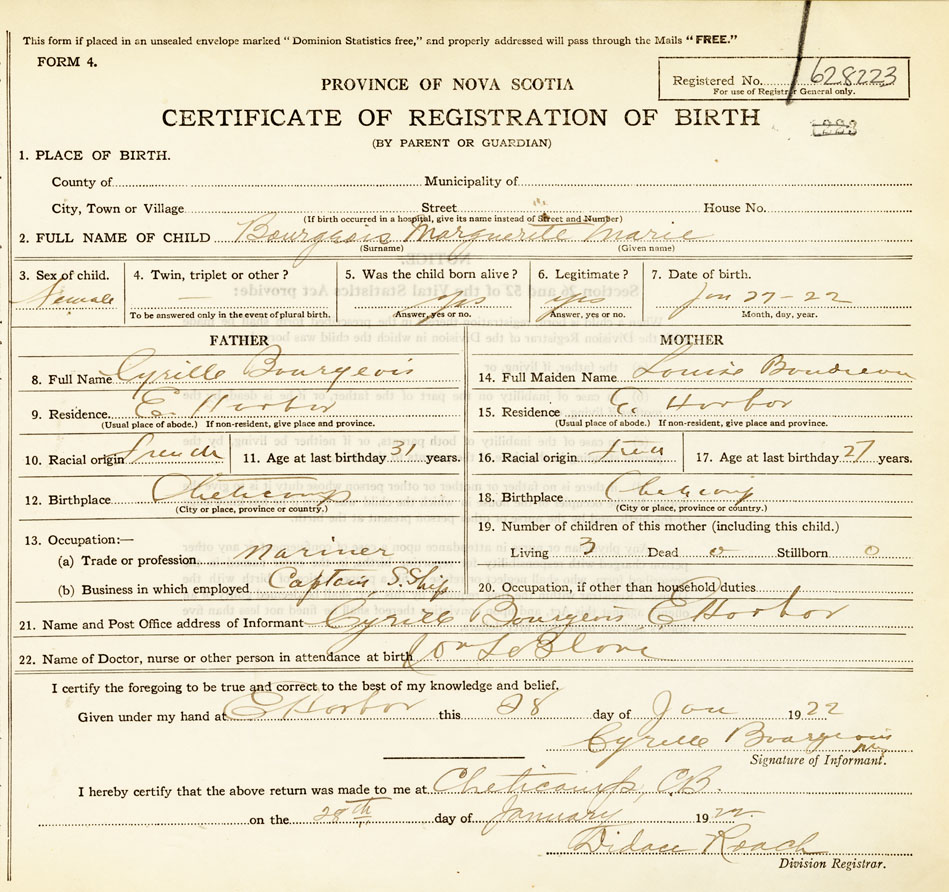 This form if placed in an unsealed envelope marked "Dominion Statistics free," and properly addressed will pass through the Mails "FREE."
FORM 4.
Registered No. 628223
For use of Registrar General only.
PROVINCE OF NOVA SCOTIA
CERTIFICATE OF REGISTRATION OF BIRTH
(BY PARENT OR GUARDIAN)
1. PLACE OF BIRTH.
County of Municipality of
City, Town or Village Street House No.
(If birth occurred in a hospital, give its name instead of Street and Number)
2. FULL NAME OF CHILD Bourgeois Marguerite Marie
(Surname) (Given name)
3. Sex of child. 4. Twin, triplet or other? 5. Was the child born alive? 6. Legitimate? 7. Date of birth.
Female — yes yes Jan 27-22
To be answered only in the event of plural birth. Answer, yes or no. Answer, yes or no. Month, day, year.
FATHER
8. Full Name Cyrille Bourgeois
9. Residence E. Harbor
(Usual place of abode.) If non-resident, give place and province.
10. Racial origin French 11. Age at last birthday 31 years.
12. Birthplace Cheticamp
(City or place, province or country.)
13. Occupation:—
(a) Trade or profession Mariner
(b) Business in which employed Captain S. Ship
MOTHER
14. Full Maiden Name Louise Boudreau
15. Residence E. Harbor
(Usual place of abode.) If non-resident, give place and province.
16. Racial origin French 17. Age at last birthday 27 years.
18. Birthplace Cheticamp
(City or place, province or country.)
19. Number of children of this mother (including this child.)
Living 3 Dead 0 Stillborn 0
20. Occupation, if other than household duties
21. Name and Post Office address of Informant Cyrille Bourgeois E Harbor
22. Name of Doctor, nurse or other person in attendance at birth
I certify the foregoing to be true and correct to the best of my knowledge and belief.
Given under my hand at E Harbor this 28 day of Jan 1922
Cyrille Bourgeois
Signature of Informant.
I hereby certify that the above return was made to me at Cheticamp, C.B.
on the 28th day of January 1922
Didace Roach
Division Registrar.